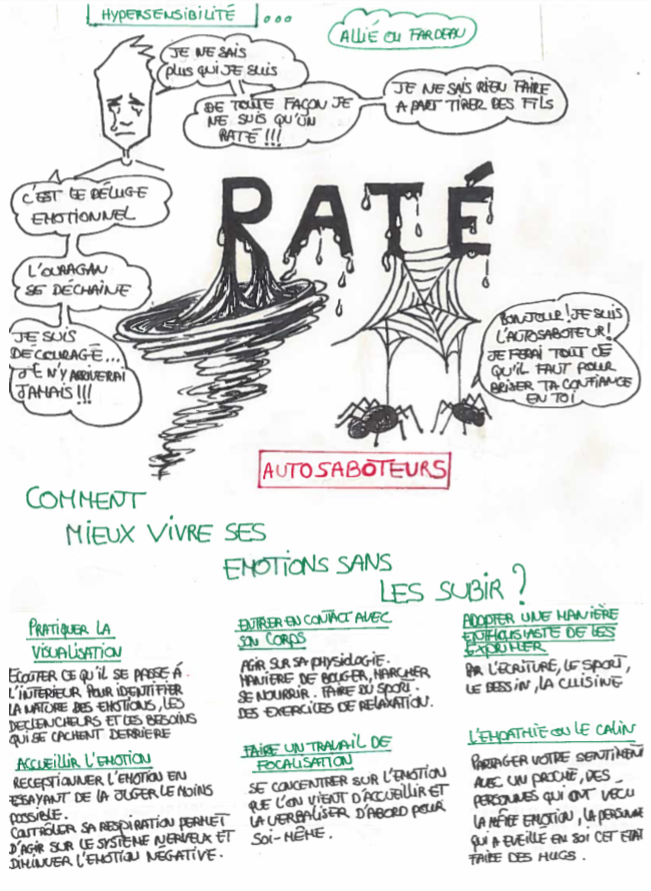 HYPERSENSIBILITÉ ...
ALLIÉ OU FARDEAU
JE NE SAIS
PLUS QUI JE SUIS
DE TOUTE FAÇON JE
NE SUIS QU'UN
RATÉ !!!
JE NE SAIS RIEN FAIRE
A PART TIRER DES FILS
C'EST LE DÉLUGE
EMOTIONNEL
L'OURAGAN
SE DÉCHAINE
JE SUIS
DECOURAGÉ...
JE N'Y ARRIVERAI
JAMAIS !!!
RATÉ
BONJOUR ! JE SUIS
L'AUTOSABOTEUR !
JE FERAI TOUT CE
QU'IL FAUT POUR
BRISER TA CONFIANCE
EN TOI
AUTOSABOTEURS
COMMENT
MIEUX VIVRE SES
EMOTIONS SANS
LES SUBIR ?
PRATIQUER LA
VISUALISATION
ECOUTER CE QU'IL SE PASSE À
L'INTERIEUR POUR IDENTIFIER
LA NATURE DES EMOTIONS, LES
DECLENCHEURS ET LES BESOINS
QUI SE CACHENT DERRIERE
ACCUEILLIR L'EMOTION
RECEPTIONNER L'EMOTION EN
ESSAYANT DE LA JUGER LE MOINS
POSSIBLE.
CONTRÔLER SA RESPIRATION PERMET
D'AGIR SUR LE SYSTÈME NERVEUX ET
DIMINUER L'EMOTION NÉGATIVE.
ENTRER EN CONTACT AVEC
SON CORPS
AGIR SUR SA PHYSIOLOGIE.
MANIÈRE DE BOUGER, MARCHER
SE NOURRIR. FAIRE DU SPORT.
DES EXERCICES DE RELAXATION.
FAIRE UN TRAVAIL DE
FOCALISATION
SE CONCENTRER SUR L'EMOTION
QUE L'ON VIENT D'ACCUEILLIR ET
LA VERBALISER D'ABORD POUR
SOI-MÊME.
ADOPTER UNE MANIÈRE
ENTHOUSIASTE DE LES
EXPRIMER
PAR L'ECRITURE, LE SPORT,
LE DESSIN, LA CUISINE
L'EMPATHIE OU LE CALIN
PARTAGER VOTRE SENTIMENT
AVEC UN PROCHE, DES
PERSONNES QUI ONT VECU
LA MÊME EMOTION, LA PERSONNE
QUI A EVEILLÉ EN SOI CET ETAT
FAIRE DES HUGS.